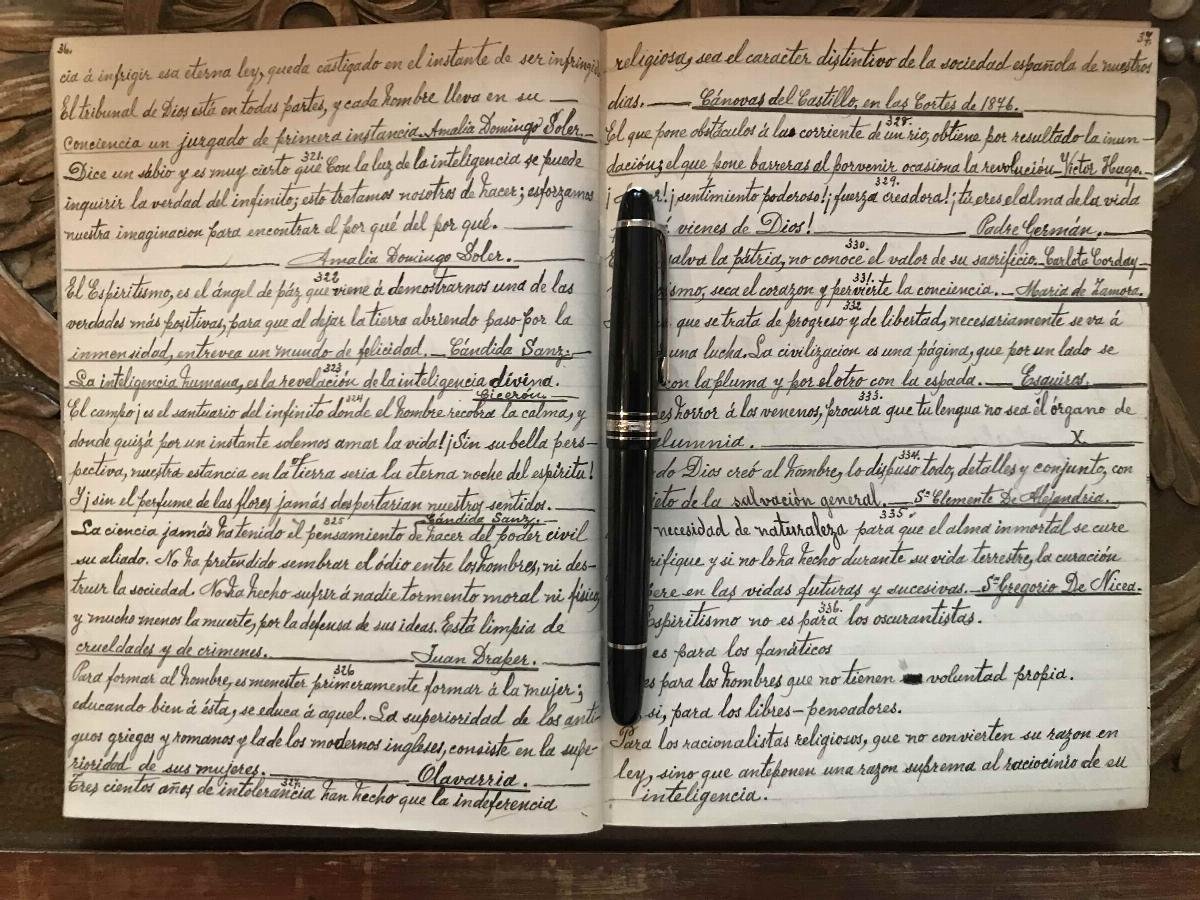 36.
cia á infrigir esa eterna ley, queda castigado en el instante de ser infringid
El tribunal de Dios está en todas partes, y cada hombre lleva en su
conciencia un juzgado de primera instancia. Amalia Domingo Soler.
321.
Dice un sábio y es muy cierto que Con la luz de la inteligencia se puede
inquirir la verdad del infinito; esto tratamos nosotros de hacer; esforzamos
nuestra imaginacion para encontrar el por qué del por qué.
Amalia Domingo Soler.
322
El Espiritismo, es el ángel de páz que viene á demostrarnos una de las
verdades más positivas, para que al dejar la tierra abriendo paso por la
inmensidad, entrevea un mundo de felicidad. Cándida Sanz.
323.
La inteligencia humana, es la revelación de la inteligencia divina.
Cicerón.
324
El campo ¡es el santuario del infinito donde el hombre recobra la calma, y
donde quizá por un instante solemos amar la vida! ¡Sin su bella pers-
pectiva, nuestra estancia en la tierra seria la eterna noche del espiritu!
Y ¡sin el perfume de las flores jamás despertarian nuestros sentidos.
Cándida Sanz.
325
La ciencia jamás ha tenido el pensamiento de hacer del poder civil
su aliado. No ha pretendido sembrar el ódio entre los hombres, ni des-
truir la sociedad. No ha hecho sufrir á nadie tormento moral ni físico,
y mucho menos la muerte, por la defensa de sus ideas. Está limpia de
crueldades y de crimenes. Juan Draper.
326
Para formar al hombre, es menester primeramente formar á la mujer;
educando bien á ésta, se educa á aquel. La superioridad de los anti-
guos griegos y romanos y la de los modernos ingleses, consiste en la supe-
rioridad de sus mujeres. Olavarria.
327.
Tres cientos años de intolerancia han hecho que la indeferencia
37.
religiosa, sea el caracter distintivo de la sociedad española de nuestros
dias. Cánovas del Castillo, en las Cortes de 1876.
328.
El que pone obstáculos á la corriente de un rio, obtiene por resultado la inun-
dación; el que pone barreras al porvenir ocasiona la revolución Victor Hugo.
329.
¡ r! ¡sentimiento poderoso! ¡fuerza creadora! ¡tú eres el alma de la vida
vienes de Dios! Padre Germán.
330.
salva la pátria, no conoce el valor de su sacrificio. Carlota Corday
331.
ismo, seca el corazon y pervierte la conciencia. Maria de Zamora.
332
que se trata de progreso y de libertad, necesariamente se va á
una lucha. La civilizacion es una página, que por un lado se
con la pluma y por el otro con la espada. Esquiros.
333.
es horror á los venenos, procura que tu lengua no sea el órgano de
lumnia. X.
334.
do Dios creó al hombre, lo dispuso todo, detalles y conjunto, con
jeto de la salvación general. Sn Clemente De Alejandria.
335.
necesidad de naturaleza para que el alma inmortal se cure
rifique y si no lo ha hecho durante su vida terrestre, la curación
ere en las vidas futuras y sucesivas. Sn Gregorio De Nicea.
336.
Espiritismo no es para los oscurantistas.
es para los fanáticos
es para los hombres que no tienen voluntad propia.
si, para los libres-pensadores.
Para los racionalistas religiosos, que no convierten su razon en
ley, sino que anteponen una razon suprema al raciocinio de su
inteligencia.